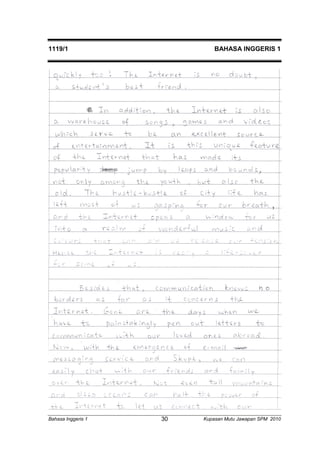 1119/1 BAHASA INGGERIS 1
quickly too! The Internet is no doubt,
a student's best friend.
In addition, the Internet is also
a warehouse of songs, games and videos
which serve to be an excellent source
of entertainment. It is this unique feature
of the Internet that has made its
popularity jump by leaps and bounds,
not only among the youth, but also the
old. The hustle-bustle of city life has
left most of us gasping for our breath,
and the Internet opens a window for us
into a realm of wonderful music and
Hence the Internet is really a
for some of us.
Besides that, communication knows no
borders as far as it concerns the
Internet. Gone are the days when we
have to painstakingly pen out letters to
communicate with our loved ones abroad.
Now, with the emergence of e-mail
messaging service and Skype, we can
easily chat with our friends and family
over the Internet. Not even tall mountains
and oceans can halt the power of
the Internet to let us connect with our
Bahasa Inggeris 1 30 Kupasan Mutu Jawapan SPM 2010